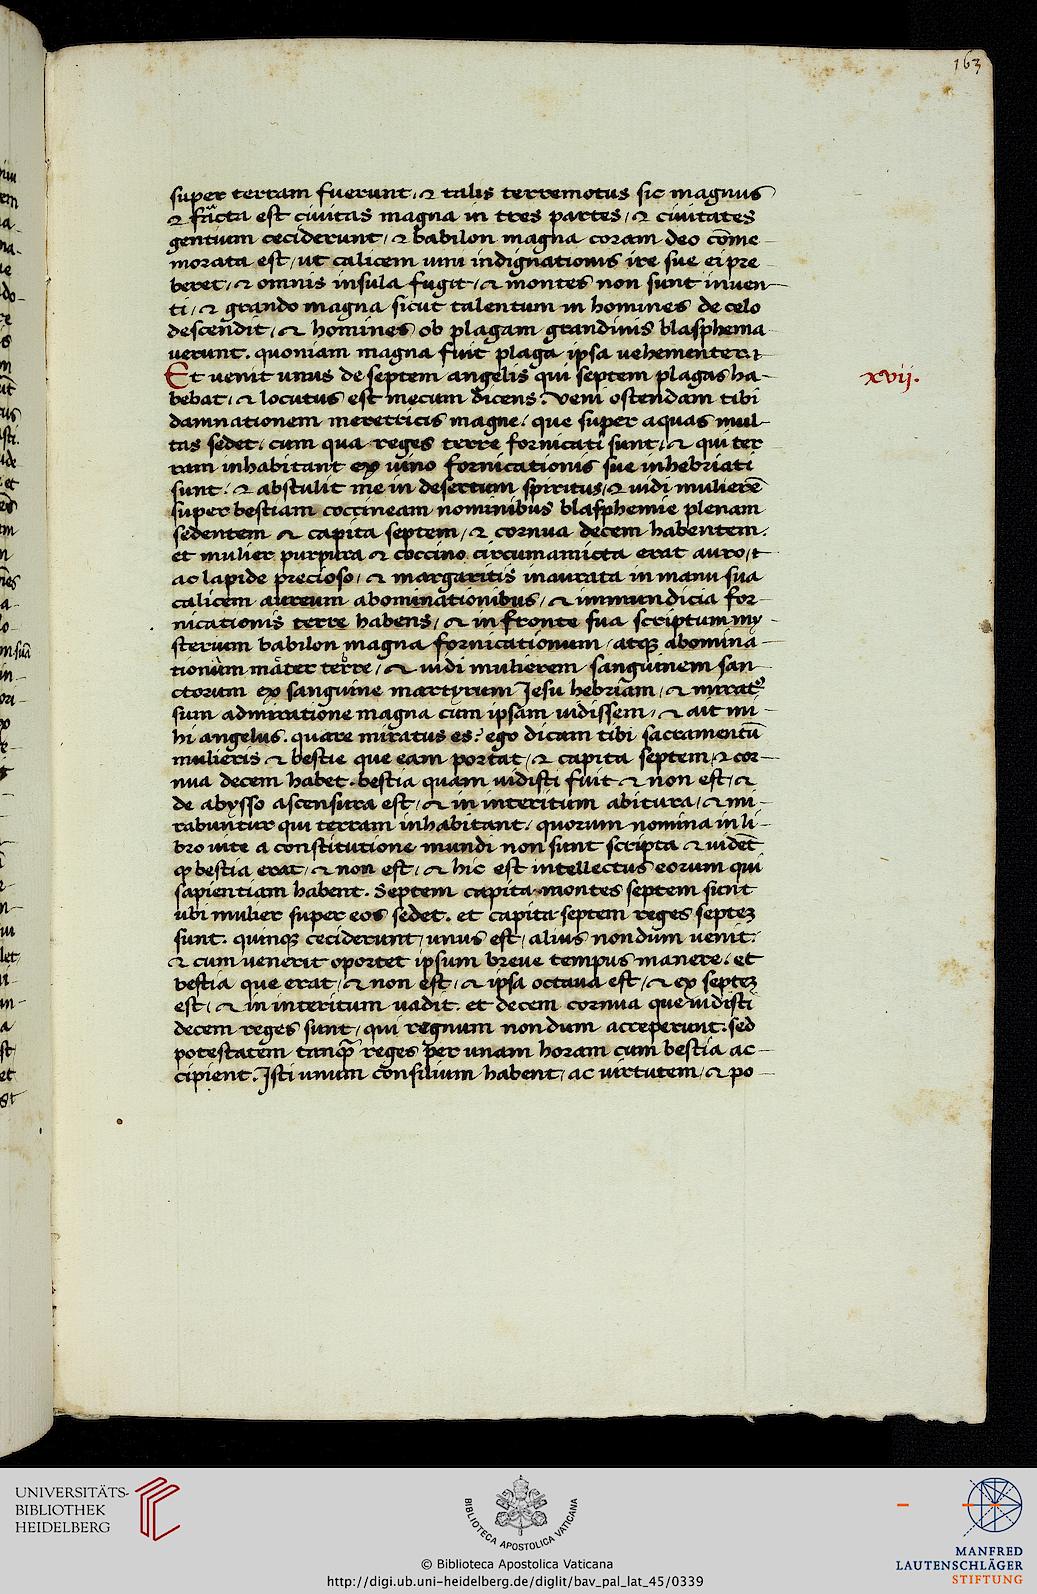 163
super terram fuerunt, & talis terremotus sic magnus
& facta est ciuitas magna in tres partes, & ciuitates
gentium ceciderunt, & babilon magna coram deo cōme-
morata est, ut calicem uini indignationis ire sue ei pre
beret, & omnis insula fugit, & montes non sunt inuen-
ti, & grando magna sicut talentum in homines de celo
descendit, & homines ob plagam grandinis blasphema
uerunt. quoniam magna fuit plaga ipsa uehementer.
Et uenit unus de septem angelis qui septem plagas ha-
xvij.
bebat, & locutus est mecum dicens: Veni ostendam tibi
damnationem meretricis magne, que super aquas mul-
tas sedet, cum qua reges terre fornicati sunt, & qui ter
ram inhabitant ex uino fornicationis sue inhebriati
sunt: & abstulit me in desertum spiritus, & uidi mulierē
super bestiam coccineam nominibus blasphemie plenam
sedentem & capita septem, & cornua decem habentem.
et mulier purpura & coccino circumamicta erat auro,
ac lapide precioso, & margaritis inaurata in manu sua
calicem aureum abominationibus, & immundicia for-
nicationis terre habens, & in fronte sua scriptum my-
sterium babilon magna fornicationum, atqꝫ abomina-
tionum mater terre, & uidi mulierem sanguinem san-
ctorum ex sanguine martyrum Jesu hebriam, & miratꝰ
sum admiratione magna cum ipsam uidissem, & ait mi-
hi angelus. quare miratus es? ego dicam tibi sacramentū
mulieris & bestie que eam portat, & capita septem, & cor-
nua decem habet. bestia quam uidisti fuit & non est, &
de abysso ascensura est, & in interitum abitura, & mi-
rabuntur qui terram inhabitant, quorum nomina in li-
bro uite a constitutione mundi non sunt scripta & uidēt
ꝙ bestia erat, & non est, & hic est intellectus eorum qui
sapientiam habent. Septem capita montes septem sunt
ubi mulier super eos sedet. et capita septem reges septeꝫ
sunt. quinqꝫ ceciderunt, unus est, alius nondum uenit:
& cum uenerit oportet ipsum breue tempus manere. et
bestia que erat, & non est, & ipsa octaua est, & ex septeꝫ
est, & in interitum uadit. et decem cornua que uidisti
decem reges sunt, qui regnum nondum acceperunt: sed
potestatem tanq̄ reges per unam horam cum bestia ac-
cipient. Isti unum consilium habent, ac uirtutem, & po-
UNIVERSITÄTS-
BIBLIOTHEK
HEIDELBERG
BIBLIOTECA APOSTOLICA VATICANA
© Biblioteca Apostolica Vaticana
http://digi.ub.uni-heidelberg.de/diglit/bav_pal_lat_45/0339
MANFRED
LAUTENSCHLÄGER
STIFTUNG